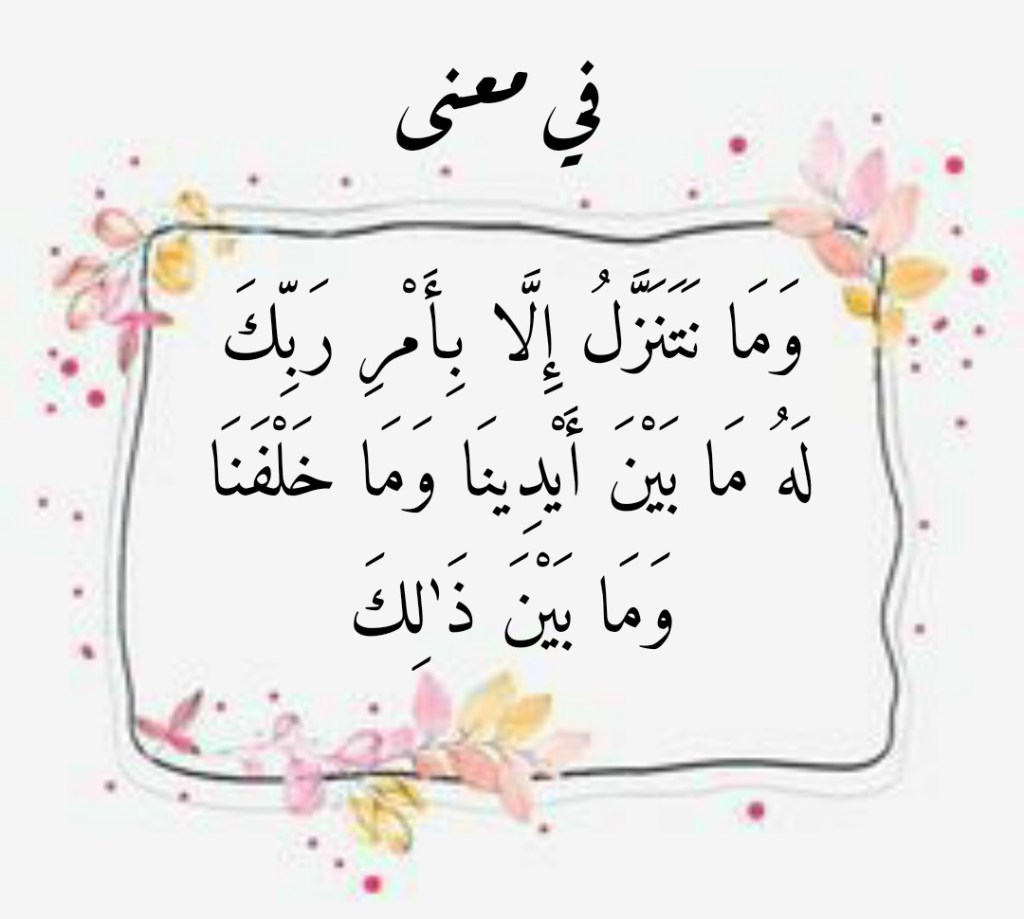 في معنى
وَمَا نَتَنَزَّلُ إِلَّا بِأَمْرِ رَبِّكَ
لَهُ مَا بَيْنَ أَيْدِينَا وَمَا خَلْفَنَا
وَمَا بَيْنَ ذَٰلِكَ